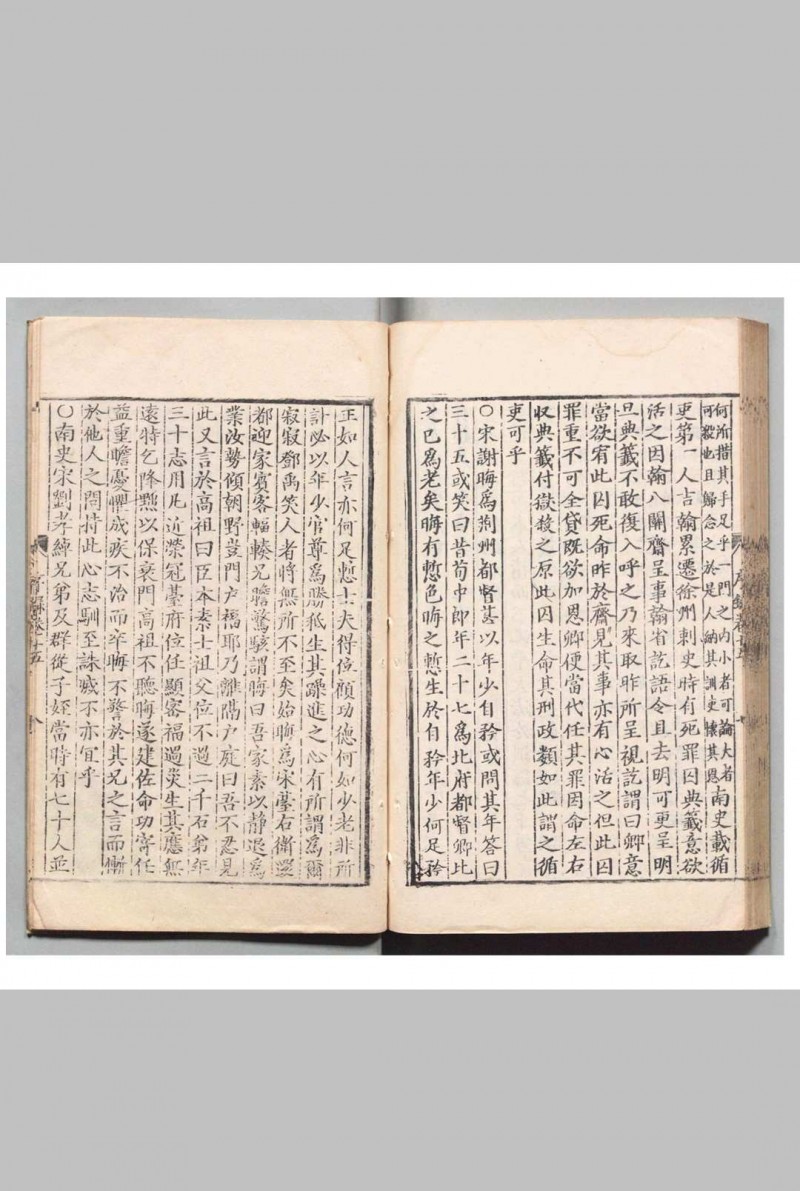 何所措其手足乎一門之内小者可論大者
可殺也且歸念之於是人納其訓吏懷其恩
南史載循
吏第一人吉翰累遷徐州刺史時有死罪囚典籤意欲
活之因翰八關齋呈事翰省訖語令且去明可更呈明
旦典籤不敢復入呼之乃來取昨所呈視訖謂曰卿意
當欲宥此囚死命昨於齋見其事亦有心活之但此囚
罪重不可全貸既欲加恩卿便當代任其罪因命左右
収典籤付獄殺之原此囚生命其刑政類如此謂之循
吏可乎
〇宋謝晦爲荆州都督甚以年少自矜或問其年荅曰
三十五或笑曰昔荀中郎年二十七爲北府都督卿比
之已爲老矣晦有慙色晦之慙生於自矜年少何足矜
正如人言亦何足慙士夫得位顧功德何如少老非所
計必以年少官尊爲勝秖生其躁進之心有所謂爲爾
寂寂鄧禹笑人者將無所不至矣始晦爲宋臺右衛還
都迎家賓客輻輳兄瞻驚駭謂晦曰吾家素以靜退爲
業汝勢傾朝野豈門户福耶乃離隔户庭曰吾不忍見
此又言於高祖曰臣本素士祖父位不過二千石弟年
三十志用凡近榮冠臺府位任顯密福過災生其應無
遠特乞降黜以保衰門高祖不聽晦遂建佐命功寄任
益重瞻憂懼成疾不治而卒晦不警於其兄之言而慚
於他人之問持此心志馴至誅滅不亦宜乎
〇南史宋劉孝綽兄弟及群從子姪當時有七十人並